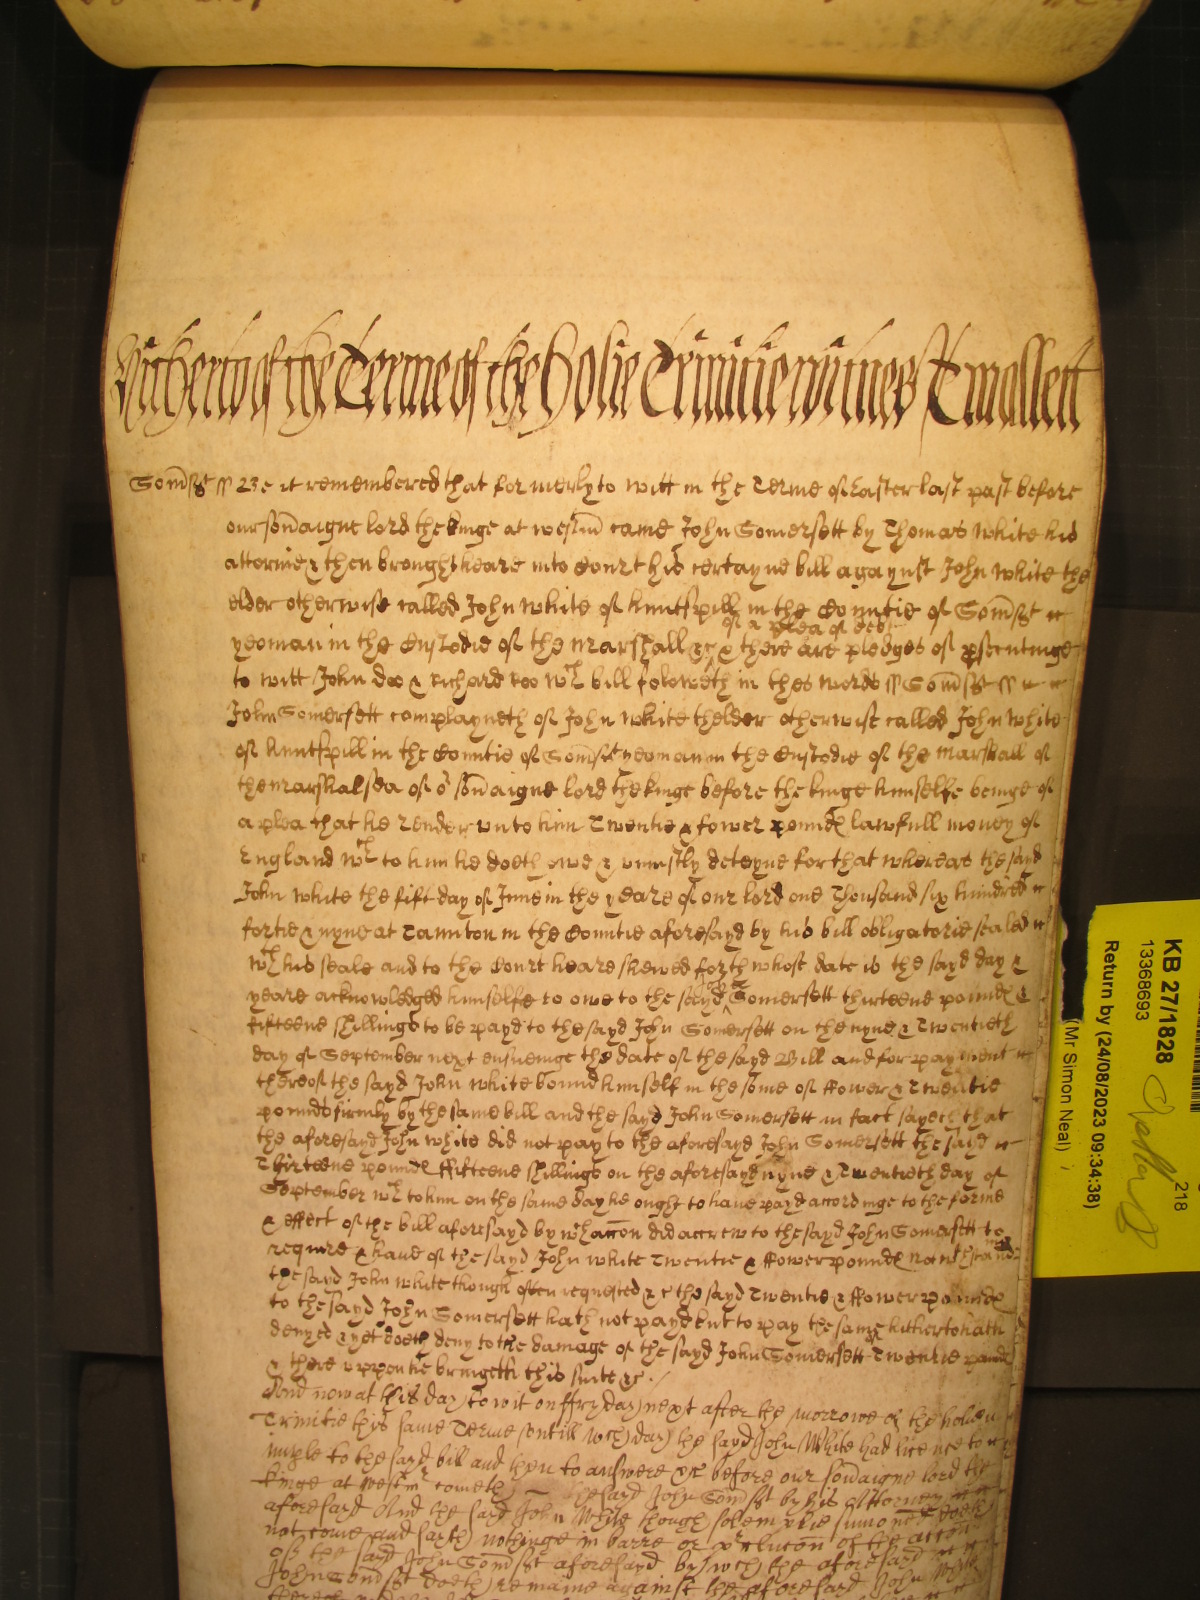 Hitherto of the Terme of the Holie Trinitie witnes T Mallett
Somst ss Be it remembered that formerly to witt in the Terme of Easter last past before
our soũaigne lord the kinge at westm̃ came John Somersett by Thomas White his
attornie & then brought heare into Court his certayne bill agaynst John White the
elder otherwise called John White of huntspill in the Countie of Somst
of a plea of debt
yeoman in the Custodie of the marshall &c & there are pledges of psecutinge
to witt John doo & Richard roo wch bill foloweth in thes words ss Somst ss
John Somersett complayneth of John White thelder otherwise called John White
of huntspill in the Countie of Somst yeoman in the Custodie of the marshall of
the marshalsea of or soũaigne lord the kinge before the kinge himselfe beinge of
a plea that he render vnto him Twentie & fower pounds lawfull money of
England wch to him he doeth owe & uniustly deteyne for that whereas the said
John White the fift day of June in the yeare of our lord one Thousand six hundred
fortie & nyne at Taunton in the Countie aforesayd by his bill obligatorie sealed
wth his seale and to the Court heare shewed forth whose date is the sayd day &
yeare acknowledged himselfe to owe to the sayd John Somersett thirteene pounds &
fifteene shillings to be payd to the sayd John Somersett on the nyne & Twentieth
day of September next ensueinge the date of the sayd Bill and for payment
thereof the sayd John White bound himself in the some of ffower & Twentie
pounds firmly by the same bill and the sayd John Somersett in fact sayeth that
the aforesayd John White did not pay to the aforesayd John Somersett the said
Thirteene pounds ffifteene shillings on the aforesayd nyne & Twentieth day of
September wch to him on the same day he ought to have payd accordinge to the forme
& effect of the bill aforesayd by wh accon did accrew to the sayd John Somersett to
require & have of the sayd John White Twentie & ffower pounds
the sayd John White though often requested &c the sayd Twentie & ffower pounds
to the sayd John Somersett hath not payd but to pay the same hitherto hath
denyed & yet doeth deny to the damage of the sayd John Somersett Twentie pounds
& there uppon he bringeth this suite &c.
And now at this day to wit on ffryday next after the morrowe of the holie
Trinitie this same Terme untill wch day the sayd John White had licence to
imple to the sayd bill and then to answere &c before our soũaigne lord the
kinge at westmr cometh the sayd John Somst by his Attorney
aforesayd And the said John White though solemplie sumoned doeth
not come and sayth nothinge in barre or p'clucõn of the accon
of the sayd John Somst aforesayd by wch the aforesayd
John Somst doeth remaine against the aforesayd John White
KB 27/1828
13368693
218
Return by (24/08/2023 09:34:38)
(Mr Simon Neal)